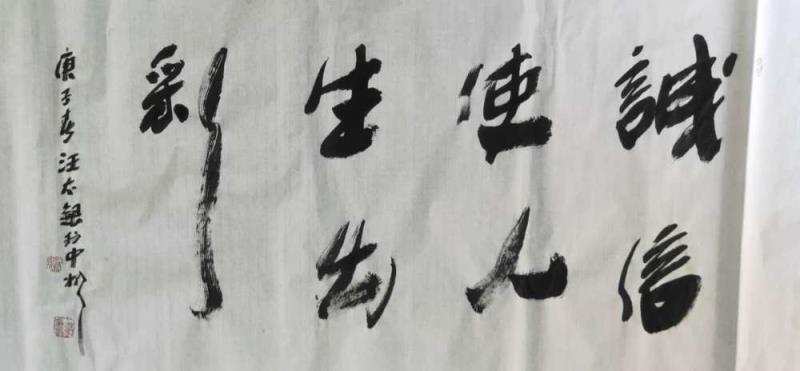 誠信
使人
生出
彩
庚子春汪太銀於中州